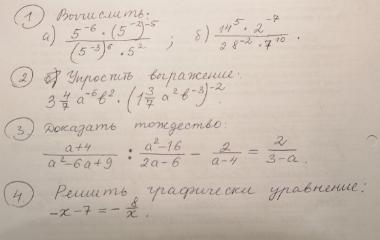 ① Вычислить:
а) (5⁻⁶ · (5⁻²)⁻⁵) / ((5⁻³)⁶ · 5²) ; б) (14⁵ · 2⁻⁷) / (28⁻² · 7¹⁰) .
② б) Упростить выражение:
3 4/7 a⁻⁶b² · (1 3/7 a²b⁻³)⁻² .
③ Доказать тождество:
(a+4) / (a²-6a+9) : (a²-16) / (2a-6) - 2 / (a-4) = 2 / (3-a) .
④ Решить графически уравнение:
-x-7 = - 8/x .